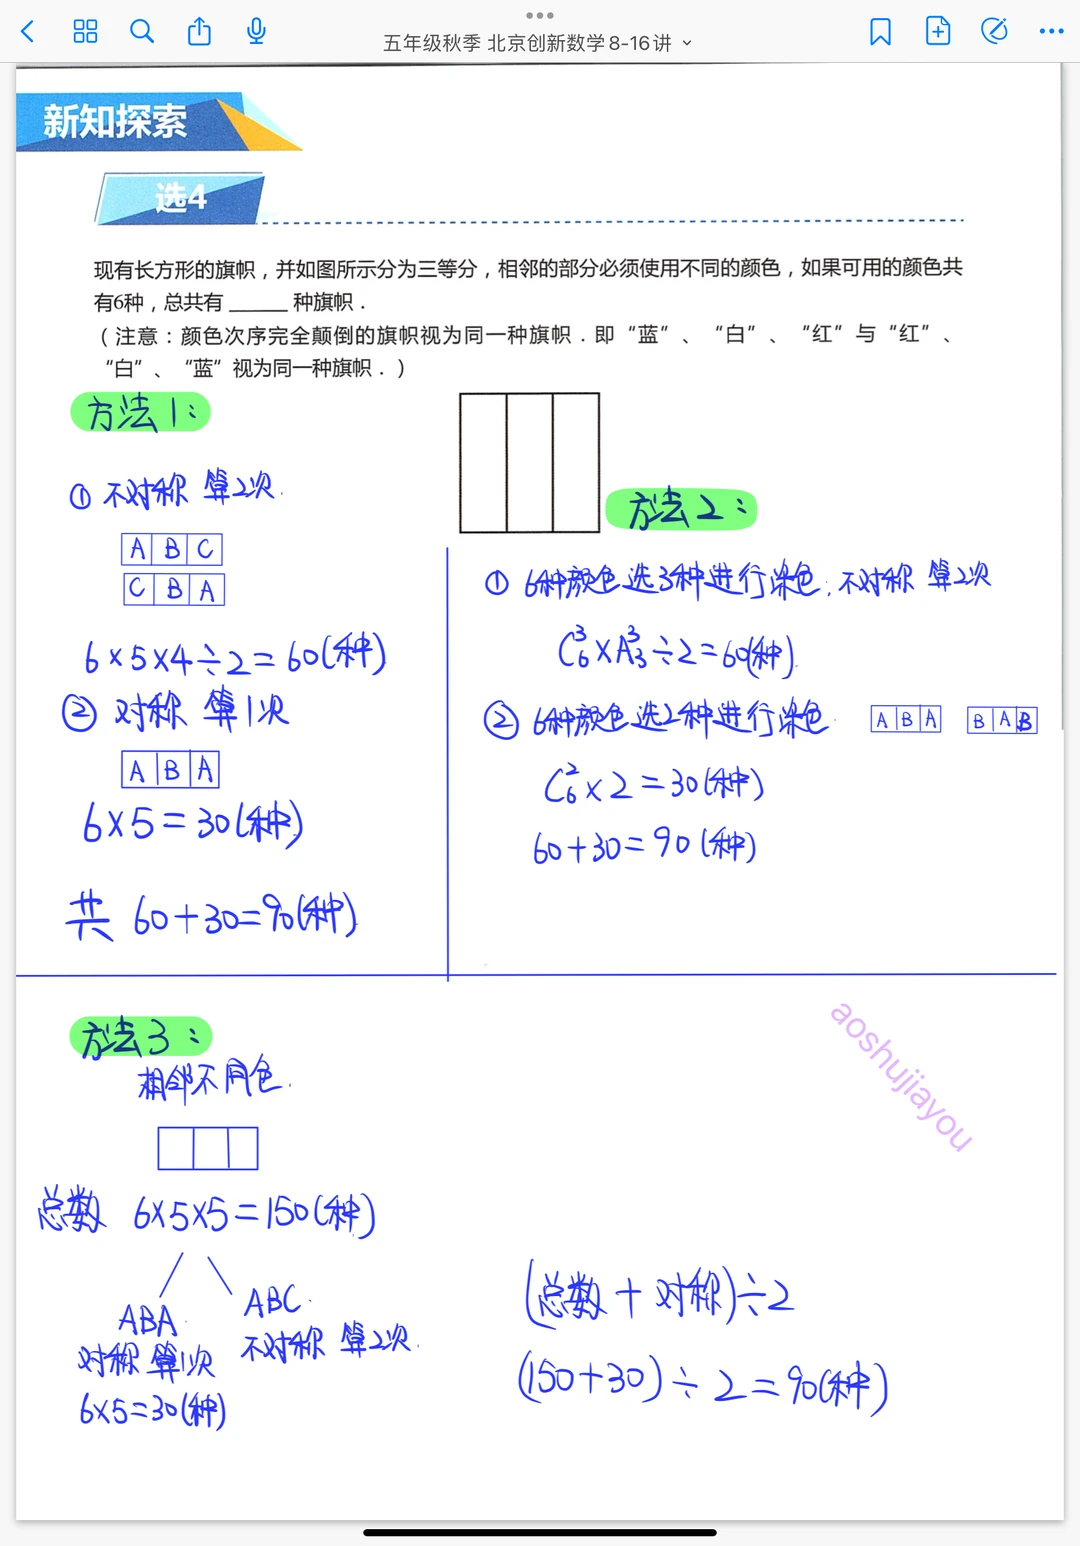 五年级秋季 北京创新数学8-16讲
新知探索
选4
现有长方形的旗帜，并如图所示分为三等分，相邻的部分必须使用不同的颜色，如果可用的颜色共
有6种，总共有 ______ 种旗帜．
（注意：颜色次序完全颠倒的旗帜视为同一种旗帜．即“蓝”、“白”、“红”与“红”、
“白”、“蓝”视为同一种旗帜．）
方法1：
① 不对称 算2次.
A B C
C B A
6×5×4÷2=60(种)
② 对称 算1次
A B A
6×5=30(种)
共 60+30=90(种)
方法2：
① 6种颜色选3种进行染色，不对称 算2次
C₆³×A₃³÷2=60(种).
② 6种颜色选2种进行染色. A B A B A B
C₆²×2=30(种)
60+30=90(种)
方法3：
相邻不同色.
总数 6×5×5=150(种)
ABA
对称 算1次
6×5=30(种)
ABC.
不对称 算2次.
(总数+对称)÷2
(150+30)÷2=90(种)
aoshujiayou